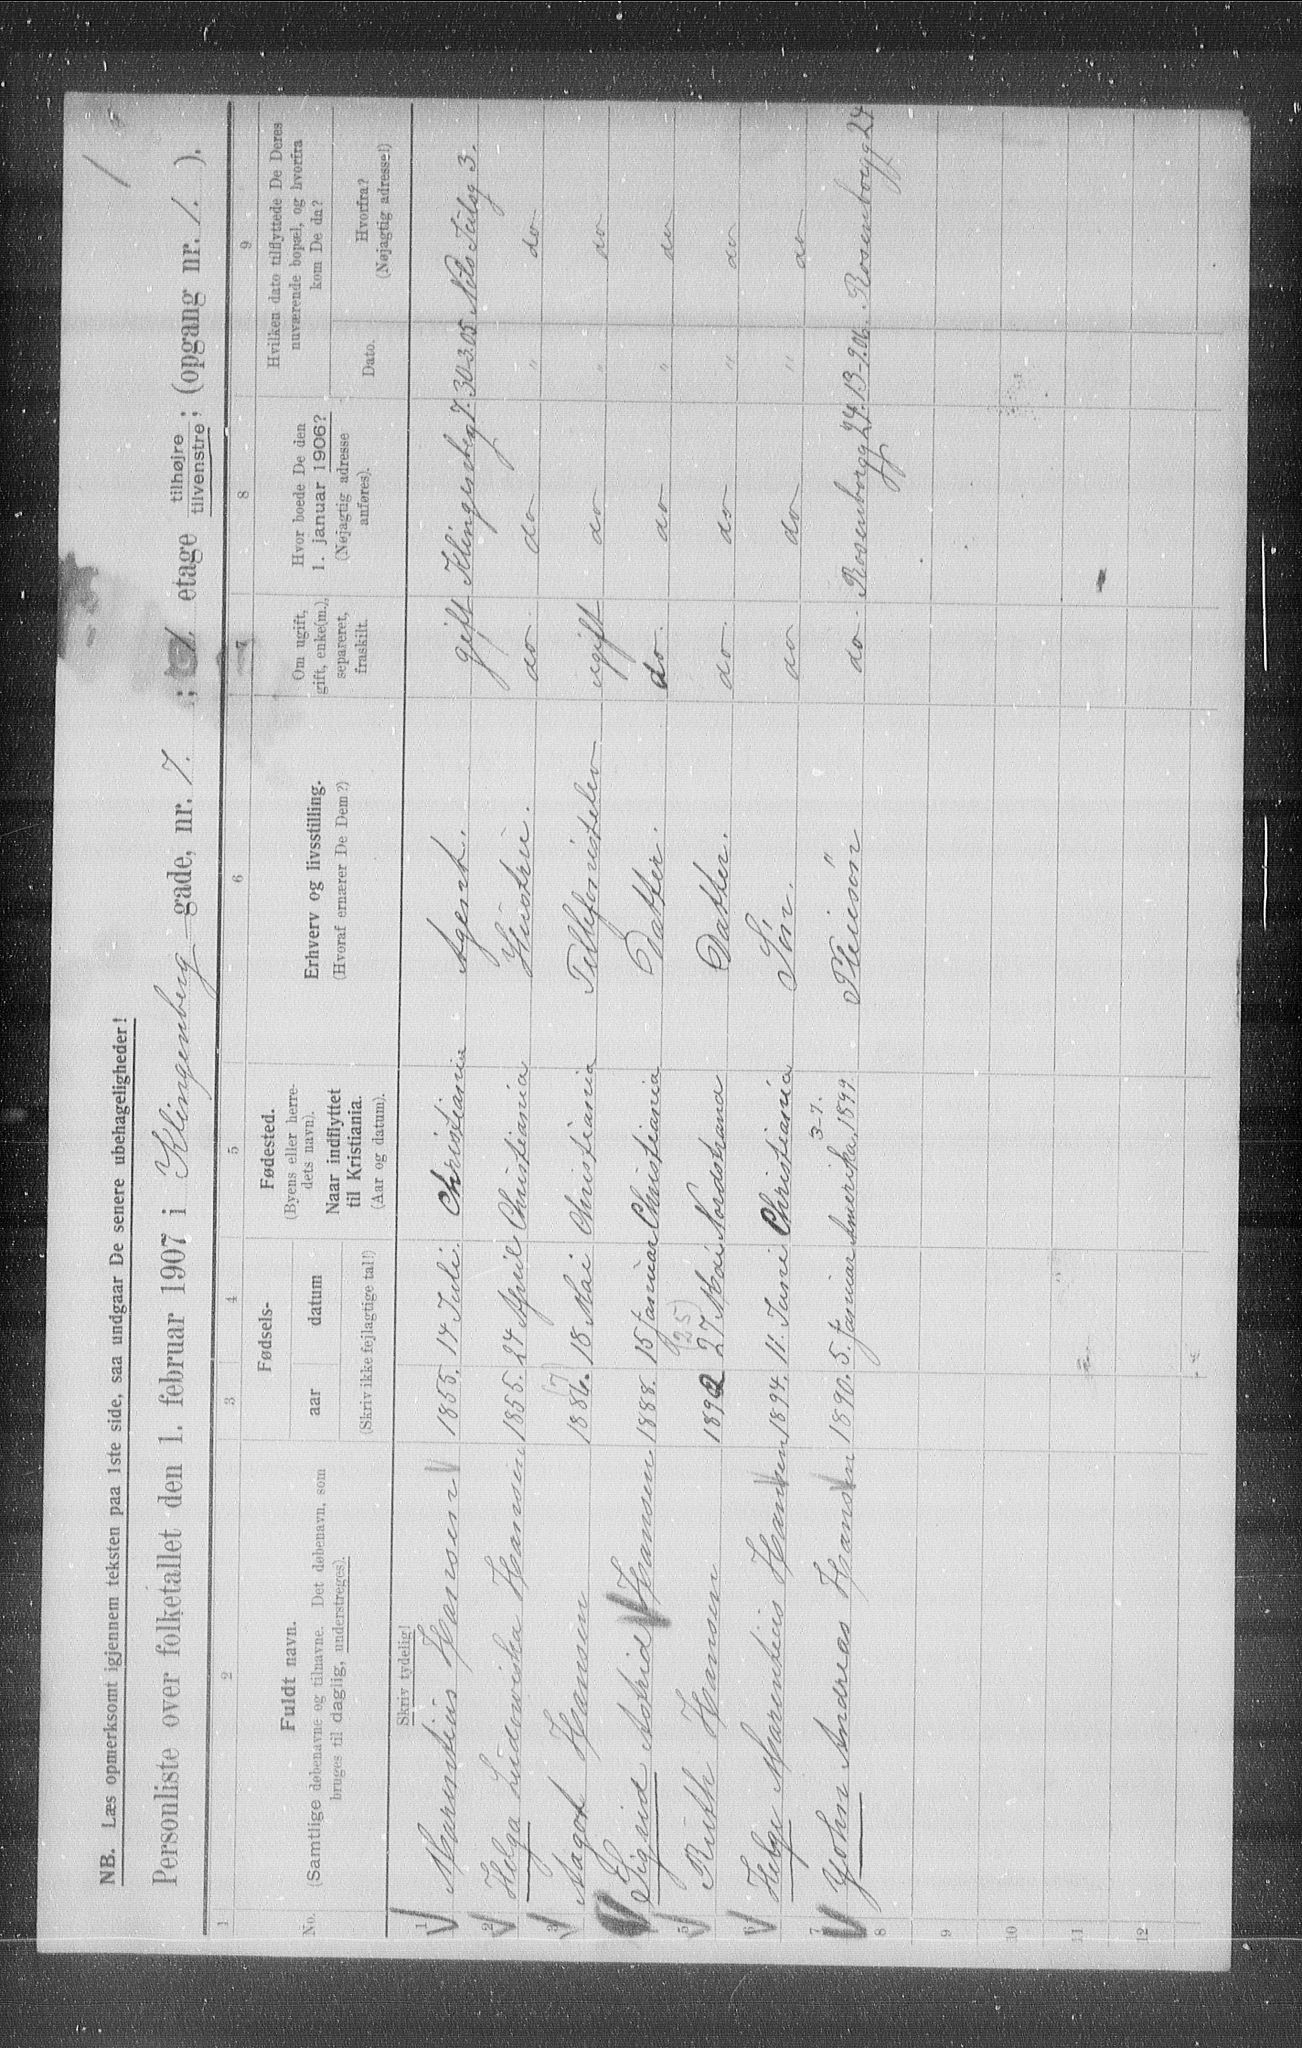 NB. Læs opmerksomt igjennem teksten paa 1ste side, saa undgaar De senere ubehageligheder!
Personliste over folketallet den 1. februar 1907 i Klingenberg gade, nr. 7. ; 1 etage tilhøjre tilvenstre; (opgang nr. 1. ).
1 2 3 4 5 6 7 8 9
No.
Fuldt navn.
(Samtlige døbenavne og tilnavne. Det døbenavn, som
bruges til daglig, understreges).
Skriv tydelig!
Fødsels-
aar datum
(Skriv ikke fejlagtige tal!)
Fødested.
(Byens eller herre-
dets navn).
Naar indflyttet
til Kristiania.
(Aar og datum).
Erhverv og livsstilling.
(Hvoraf ernærer De Dem?)
Om ugift,
gift, enke(m.),
separeret,
fraskilt.
Hvor boede De den
1. januar 1906?
(Nøjagtig adresse
anføres).
Hvilken dato tilflyttede De Deres
nuværende bopæl, og hvorfra
kom De da?
Dato.
Hvorfra?
(Nøjagtig adresse!)
1 Marentius Hansen 1855. 14 Juli. Christiania Agent. gift Klingenbg 7. 30-3.05 Nils Juelsg 3.
2 Helga Ludovicka Hansen 1855. 24 April Christiania Hustru. do. do " do
3 Aagot Hansen 1886. (7) 18 Mai Christiania Tellefonistelev ugift do " do
4 Sigrid Astrid Hansen 1888. 15 Januar Christiania Datter. do. do " do
5 Ruth Hansen 1892 27 (25) Mai Nordstrand Datter. do. do " do
6 Helge Marentius Hansen 1894. 11. Juni Christiania Sön. do do " do
7 John Andreas Hansen 1890. 5. Januar Amerika 3-7. 1899. Pleiesön do. Rosenborgg 24. 13-9.06. Rosenborgg 24
8
9
10
11
12